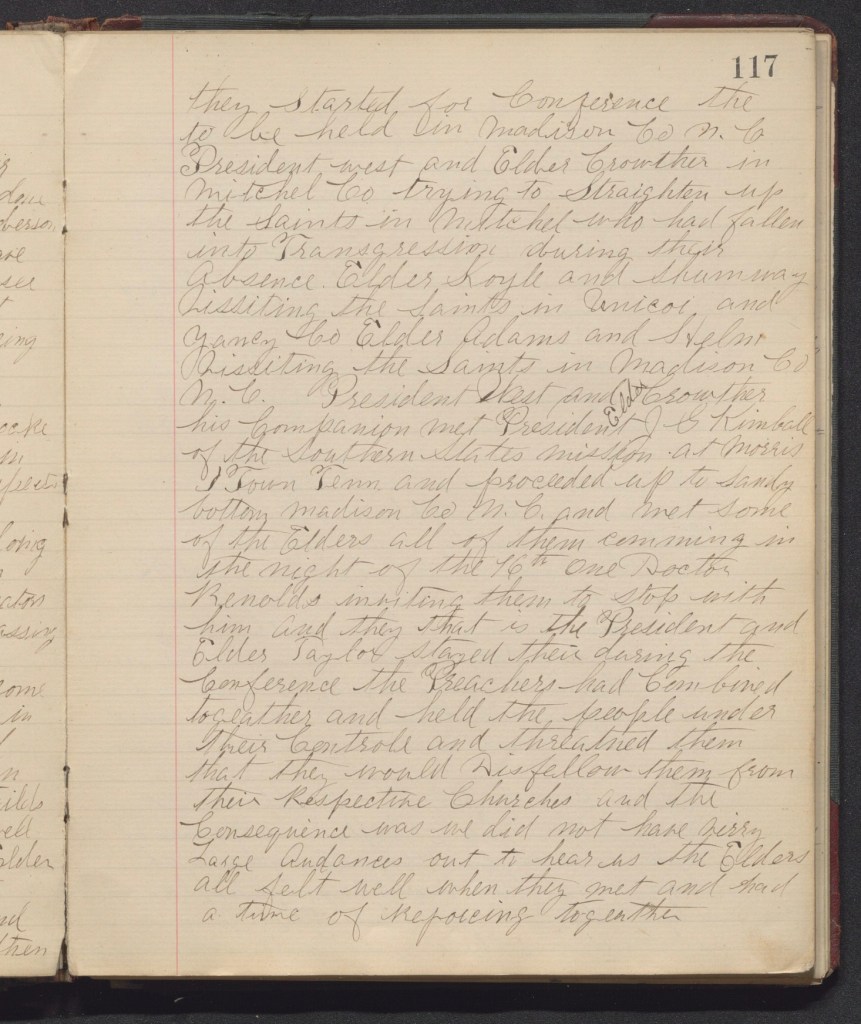 117
they started for Conference the
to be held in Madison Co N. C
President west and Elder Crowther in
Mitchel Co trying to Straighten up
the Saints in Mitchel who had fallen
into Transgression during their
Absence. Elder Koyle and Shumway
Vissiting the Saints in Unicoi and
Yancy Co Elder Adams and
Vissiting the Saints in Madison Co
N. C. President West and Crowther
his Companion met President Elder J G Kimball
of the Southern States mission at Morris
Town Tenn and proceeded up to Sandy
bottom Madison Co N. C. and met some
of the Elders all of them comming in
the night of the 16th One Doctor
Renolds inviting them to stop with
him and they that is the President and
Elder Taylor stayed their during the
Conference the Preachers had Combined
togeather and held the people under
their Controle and threatned them
that they would Disfellow them from
their Respective Churches and the
Consequence was we did not have verry
Large Audances out to hear us the Elders
all felt well when they met and had
a time of Rejoicing togeather